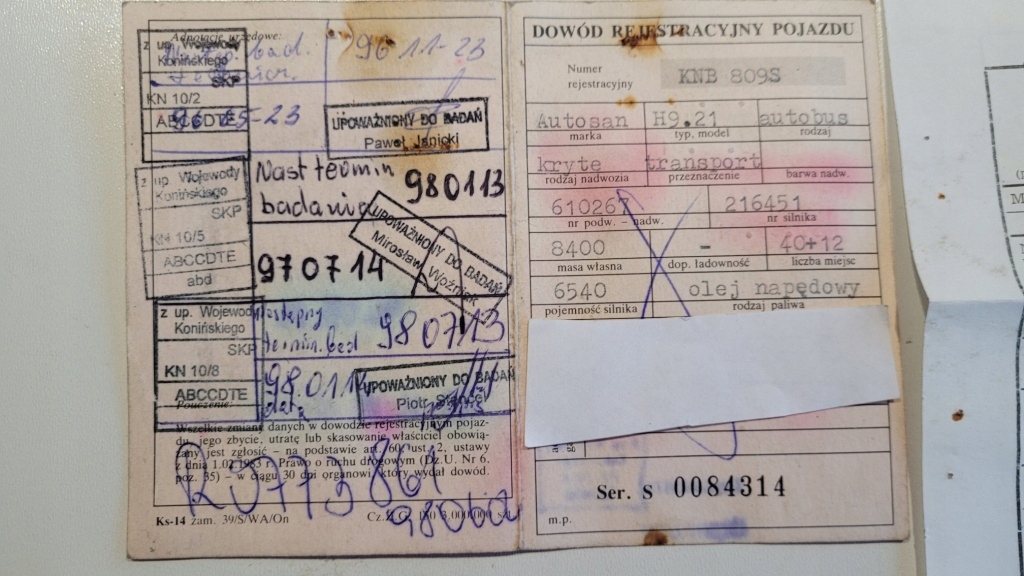 Adnotacje urzędowe:
z up. Wojewody
Konińskiego
SKP
KN 10/2
ABCCDTE
96-11-23
UPOWAŻNIONY DO BADAŃ
Paweł Janicki
z up. Wojewody
Konińskiego
SKP
KN 10/5
ABCCDTE
abd
Nast termin
badania 980113
970714
UPOWAŻNIONY DO BADAŃ
Mirosław Woźniak
z up. Wojewody
Konińskiego
SKP
KN 10/8
ABCCDTE
Następny
termin. bad 980713
98.01.1
data
UPOWAŻNIONY DO BADAŃ
Piotr
Pouczenie:
Wszelkie zmiany danych w dowodzie rejestracyjnym pojaz-
du, jego zbycie, utratę lub skasowanie właściciel obowią-
zany jest zgłosić – na podstawie art. 60 ust. 2, ustawy
z dnia 1.02.1983 r. Prawo o ruchu drogowym (Dz.U. Nr 6,
poz. 35) – w ciągu 30 dni organowi, który wydał dowód.
Ks-14 zam. 39/S/WA/On
DOWÓD REJESTRACYJNY POJAZDU
Numer
rejestracyjny
KNB 809S
Autosan H9.21 autobus
marka typ, model rodzaj
kryte transport
rodzaj nadwozia przeznaczenie barwa nadw.
610267 216451
nr podw. – nadw. nr silnika
8400 - 40+12
masa własna dop. ładowność liczba miejsc
6540 olej napędowy
pojemność silnika rodzaj paliwa
Ser. S 0084314
m.p.